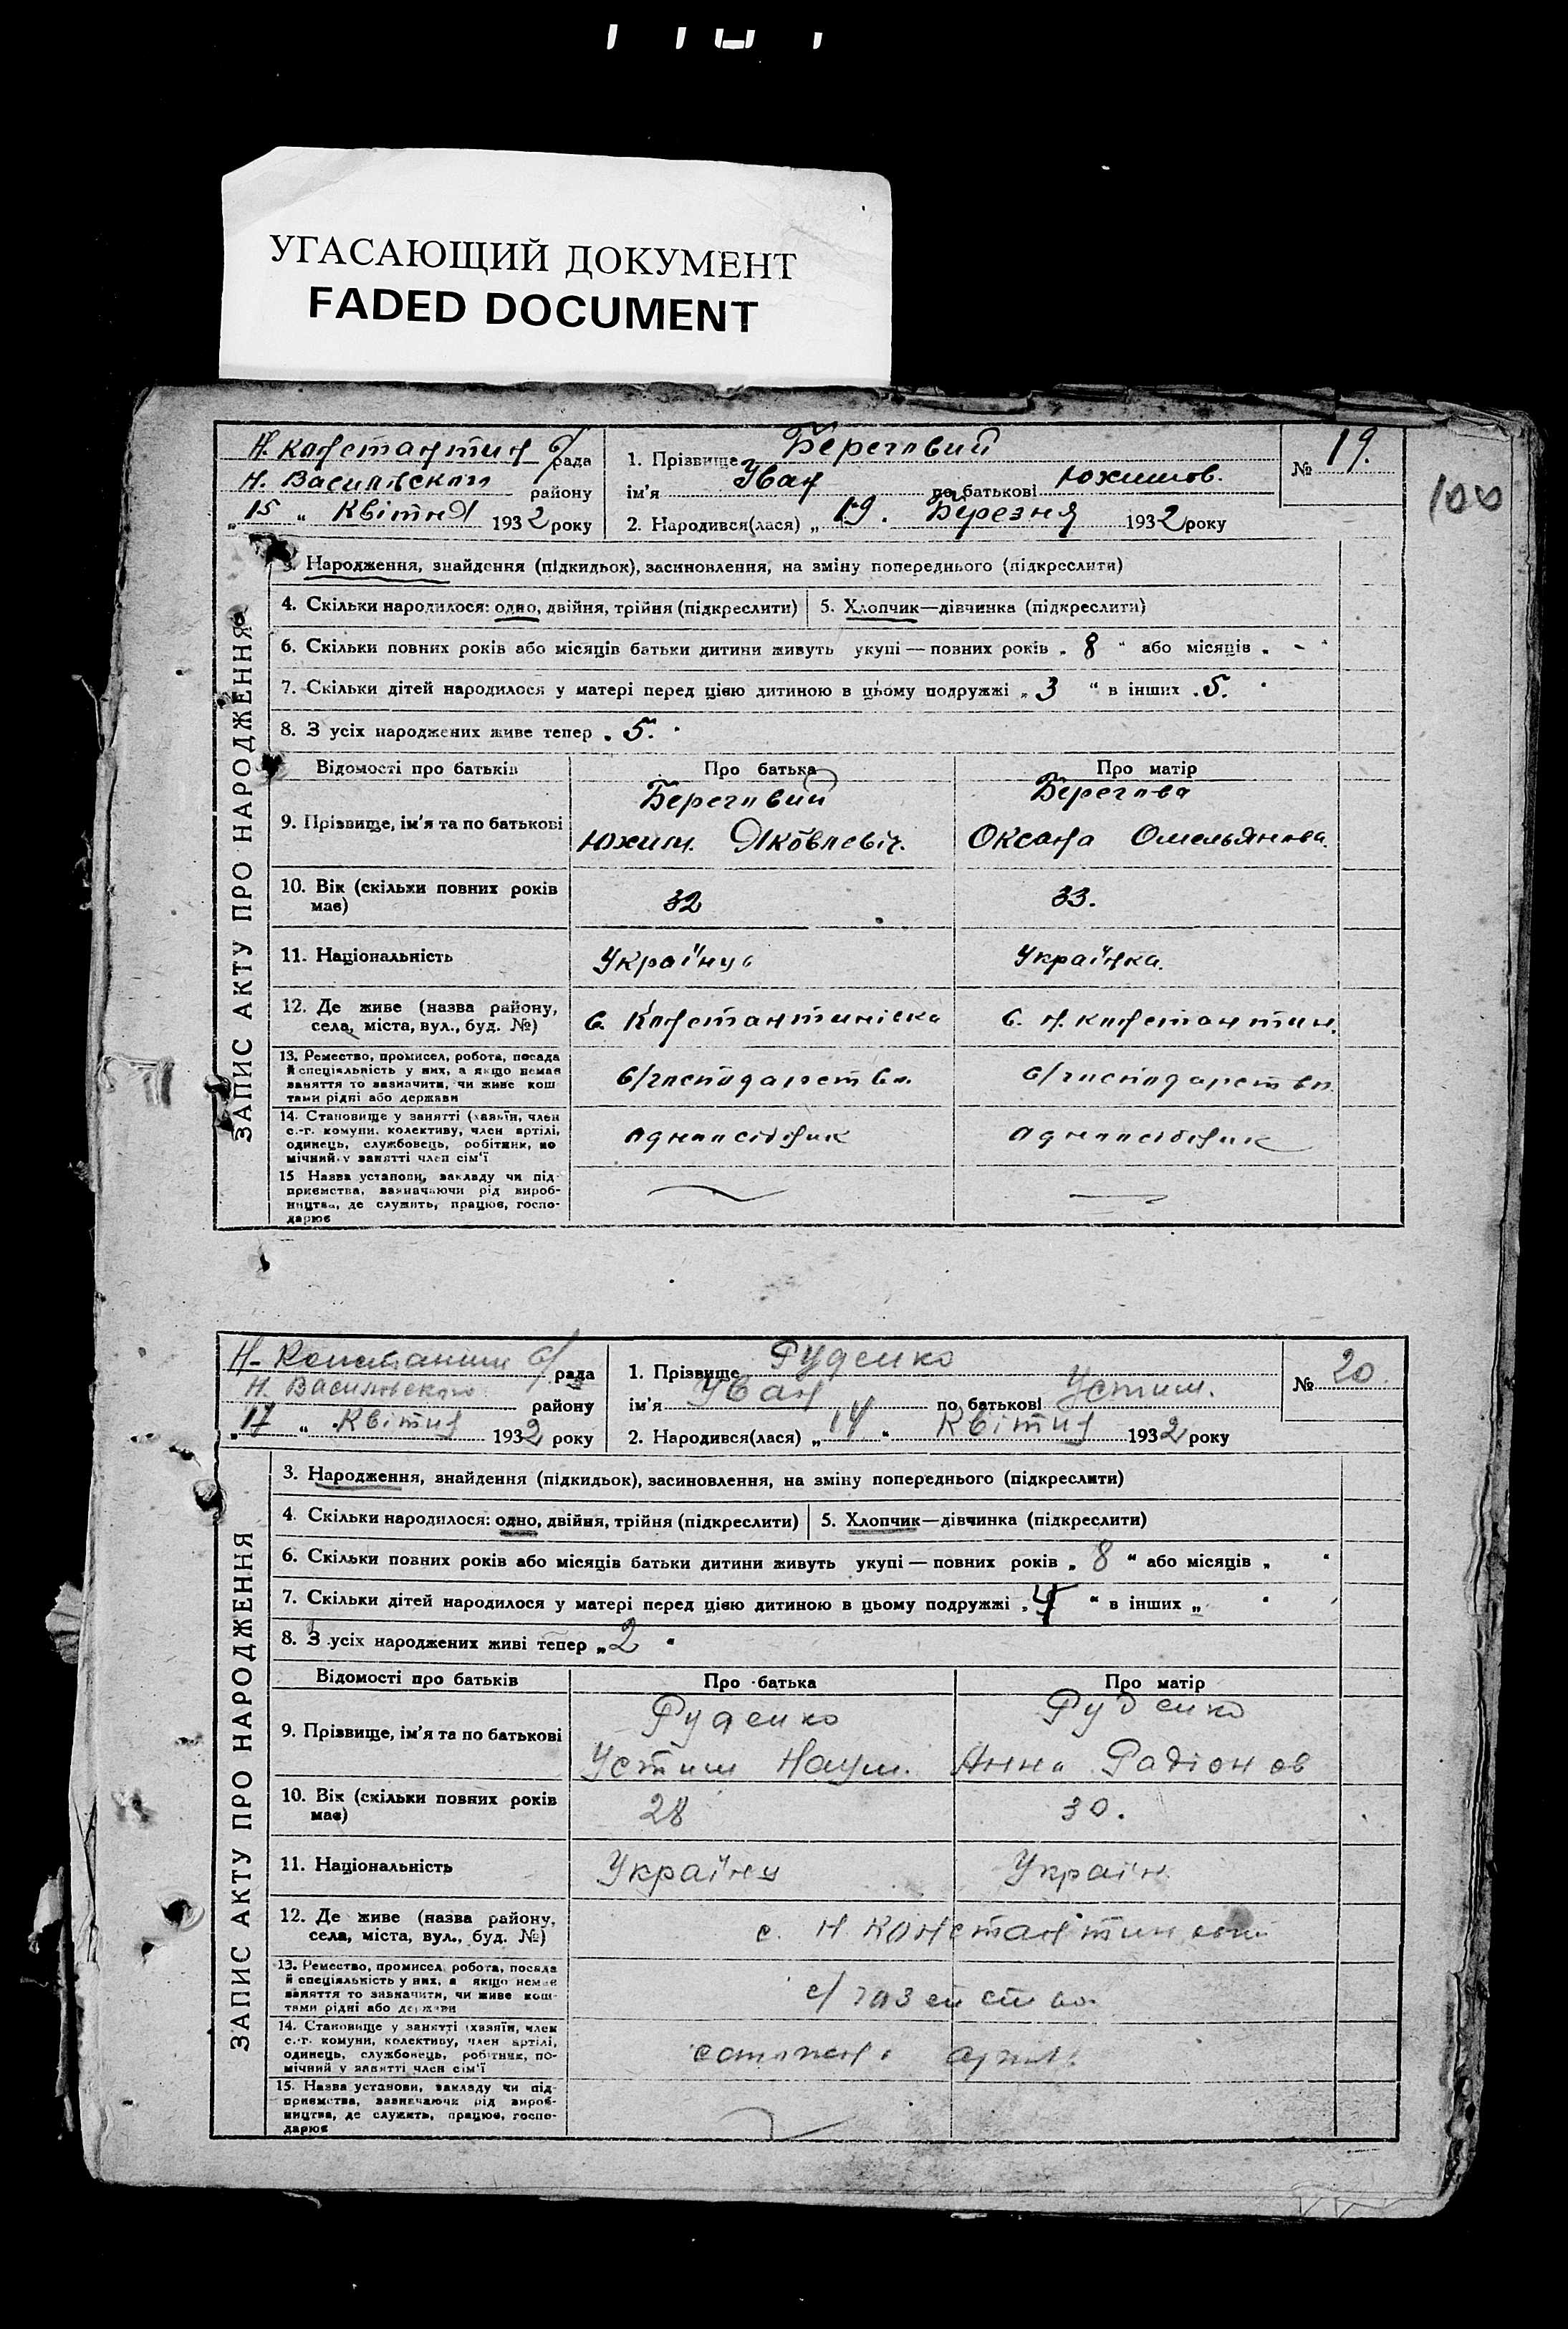 УГАСАЮЩИЙ ДОКУМЕНТ
FADED DOCUMENT
100
Н. Константин с/рада
Н. Василівском району
„15“ Квітня 1932 року
1. Прізвище Береговий
ім'я Іван по батькові Юхимов.
2. Народився(лася) „19. Березня 1932 року
№ 19.
ЗАПИС АКТУ ПРО НАРОДЖЕННЯ
3. Народження, знайдення (підкидьок), засиновлення, на зміну попереднього (підкреслити)
4. Скільки народилося: одно, двійня, трійня (підкреслити)
5. Хлопчик—дівчинка (підкреслити)
6. Скільки повних років або місяців батьки дитини живуть укупі — повних років „8“ або місяців „-“
7. Скільки дітей народилося у матері перед цією дитиною в цьому подружжі „3“ в інших „5.“
8. З усіх народжених живе тепер „5.“
Відомості про батьків
Про батька
Про матір
9. Прізвище, ім'я та по батькові
Береговий
Юхим. Яковлевіч.
Берегова
Оксана Омельянова.
10. Вік (скільки повних років має)
32
33.
11. Національність
Українць
Українка.
12. Де живе (назва району,
села, міста, вул., буд. №)
с. Константинівка
с. Н. Константин.
13. Ремество, промисел, робота, посада
й спеціяльність у них, а якщо немає
заняття то зазначити, чи живе кош
тами рідні або держави
с/господарство.
с/господарство.
14. Становище у занятті (хазяїн, член
с.-г. комуни, колективу, член артілі,
одинець, службовець, робітник, по
мічний у занятті член сім'ї
одноосібник
одноосібник
15 Назва установи, закладу чи під-
приємства, зазначаючи рід вироб-
ництва, де служить, працює, госпо-
дарює
Н- Константин с/рада
Н. Василівского району
„17“ Квітня 1932 року
1. Прізвище Руденко
ім'я Іван по батькові Устим.
2. Народився(лася) „14“ Квітня 1932 року
№ 20.
ЗАПИС АКТУ ПРО НАРОДЖЕННЯ
3. Народження, знайдення (підкидьок), засиновлення, на зміну попереднього (підкреслити)
4. Скільки народилося: одно, двійня, трійня (підкреслити)
5. Хлопчик—дівчинка (підкреслити)
6. Скільки повних років або місяців батьки дитини живуть укупі — повних років „8“ або місяців „ “
7. Скільки дітей народилося у матері перед цією дитиною в цьому подружжі „4“ в інших „ “
8. З усіх народжених живі тепер „2“
Відомості про батьків
Про батька
Про матір
9. Прізвище, ім'я та по батькові
Руденко
Устим Наум.
Руденко
Анна Радіонов
10. Вік (скільки повних років
має)
28
30.
11. Національність
Українц
Україн
12. Де живе (назва району,
села, міста, вул., буд. №)
с. Н Константин
13. Ремество, промисел, робота, посада
й спеціяльність у них, а якщо немає
заняття то зазначити, чи живе кош-
тами рідні або держави
14. Становище у занятті (хазяїн, член
с.-г. комуни, колективу, член артілі,
одинець, службовець, робітник, по-
мічний у занятті член сім'ї
15. Назва установи, закладу чи під-
приємства, зазначаючи рід вироб-
ництва, де служить, працює, госпо-
дарює